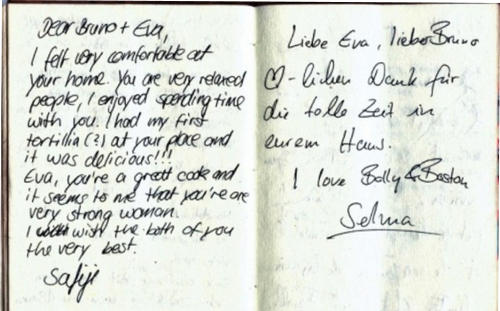 Dear Bruno + Eva,
I felt very comfortable at
your home. You are very relaxed
people, I enjoyed spending time
with you. I had my first
tortillia (?) at your place and
it was delicious!!!
Eva, you're a great cook and
it seems to me that you're are
very strong woman.
I wish the both of you
the very best.
Liebe Eva, lieber Bruno
♡-lichen Dank für
die tolle Zeit in
eurem Haus.
I love Bolly & Boston
Selma